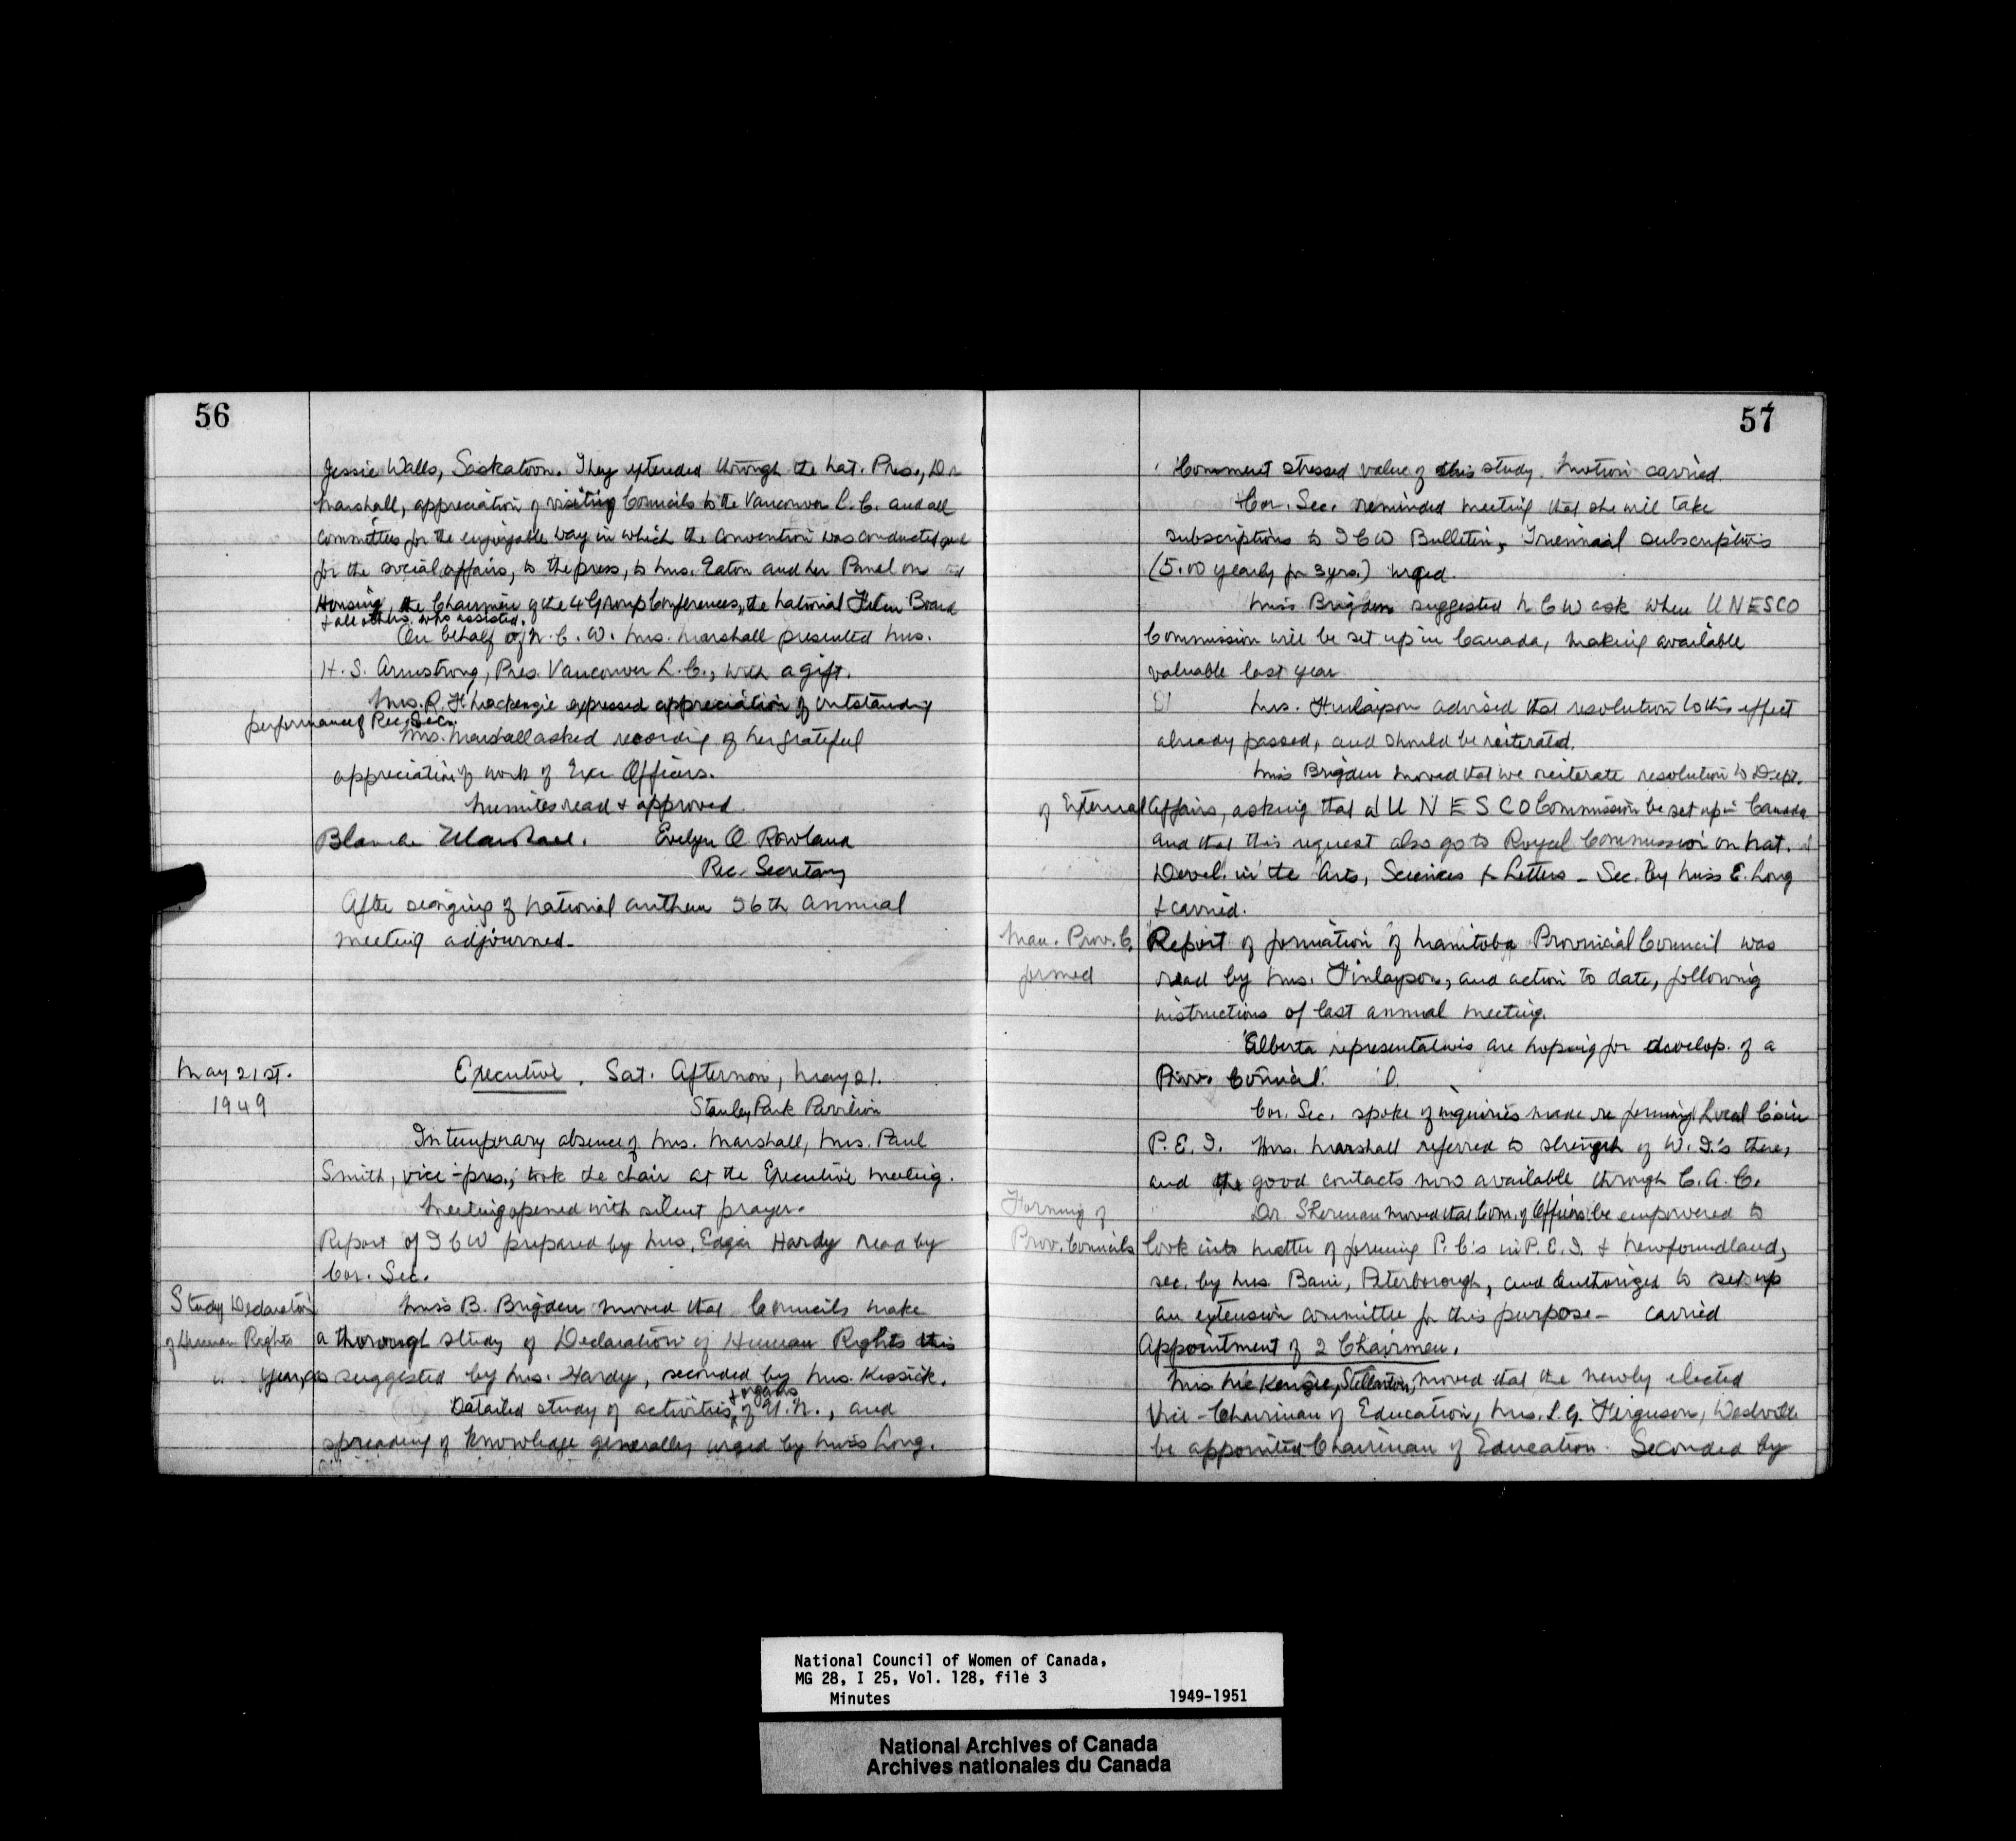 56
Jessie Walls, Saskatoon. They extended through the Nat. Pres., Dr.
Marshall, appreciation of visiting Councils to the Vancouver L.C. and all
committees for the enjoyable way in which the convention was conducted and
for the social affairs, to the press, to Mrs. Eaton and her Panel on
Housing, the Chairmen of the 4 Group Conferences, the National Film Board
& all others who assisted.
On behalf of N.C.W. Mrs. Marshall presented Mrs.
H. S. Armstrong, Pres. Vancouver L.C., with a gift.
Mrs. R. H. Mackenzie expressed appreciation of outstanding
performance of Rec. Sec.
Mrs. Marshall asked recording of her grateful
appreciation of work of Exe Officers.
Minutes read & approved
Blanche Marshall. Evelyn O. Rowland
Rec. Secretary
After singing of national anthem 56th annual
meeting adjourned.
May 21st. 1949
Executive. Sat. Afternoon, May 21.
Stanley Park Pavilion
In temporary absence of Mrs. Marshall, Mrs. Paul
Smith, vice-pres., took the chair at the Executive meeting.
Meeting opened with silent prayer.
Report of I C W prepared by Mrs. Edgar Hardy read by
Cor. Sec.
Study Declaration
of Human Rights
Miss B. Brigden moved that Councils make
a thorough study of Declaration of Human Rights this
year, as suggested by Mrs. Hardy, seconded by Mrs. Kessick.
Detailed study of activities & organs of U.N., and
spreading of knowledge generally urged by Miss Long.
57
Comment stressed value of this study. Motion carried.
Cor. Sec. reminded meeting that she will take
subscriptions to I C W Bulletin, Triennial subscriptions
(5.00 yearly for 3 yrs.) urged.
Miss Brigden suggested N C W ask when UNESCO
Commission will be set up in Canada, making available
valuable last year
Mrs. Finlayson advised that resolution to this effect
already passed, and should be reiterated.
Miss Brigden moved that we reiterate resolution to Dept.
of External Affairs, asking that a U N E S C O Commission be set up in Canada
and that this request also go to Royal Commission on Nat.
Devel. in the Arts, Sciences & Letters - Sec. by Miss E. Long
& carried.
Man. Prov. C.
formed
Report of formation of Manitoba Provincial Council was
read by Mrs. Finlayson, and action to date, following
instructions of last annual meeting.
Alberta representatives are hoping for develop. of a
Prov. Council.
Cor. Sec. spoke of inquiries made re forming Local C's in
P.E.I. Mrs. Marshall referred to strength of W.I.'s there,
and the good contacts now available through C.A.C.
Forming of
Prov. Councils
Dr. Sherman moved that Com. of Officers be empowered to
look into matter of forming P.C's in P.E.I. & Newfoundland,
sec. by Mrs. Bain, Peterborough, and authorized to set up
an extension committee for this purpose - carried
Appointment of 2 Chairmen.
Mrs. McKenzie, Stellarton, moved that the newly elected
Vice-Chairman of Education, Mrs. L. G. Ferguson, Westville
be appointed Chairman of Education. Seconded by
National Council of Women of Canada,
MG 28, I 25, Vol. 128, file 3
Minutes 1949-1951
National Archives of Canada
Archives nationales du Canada